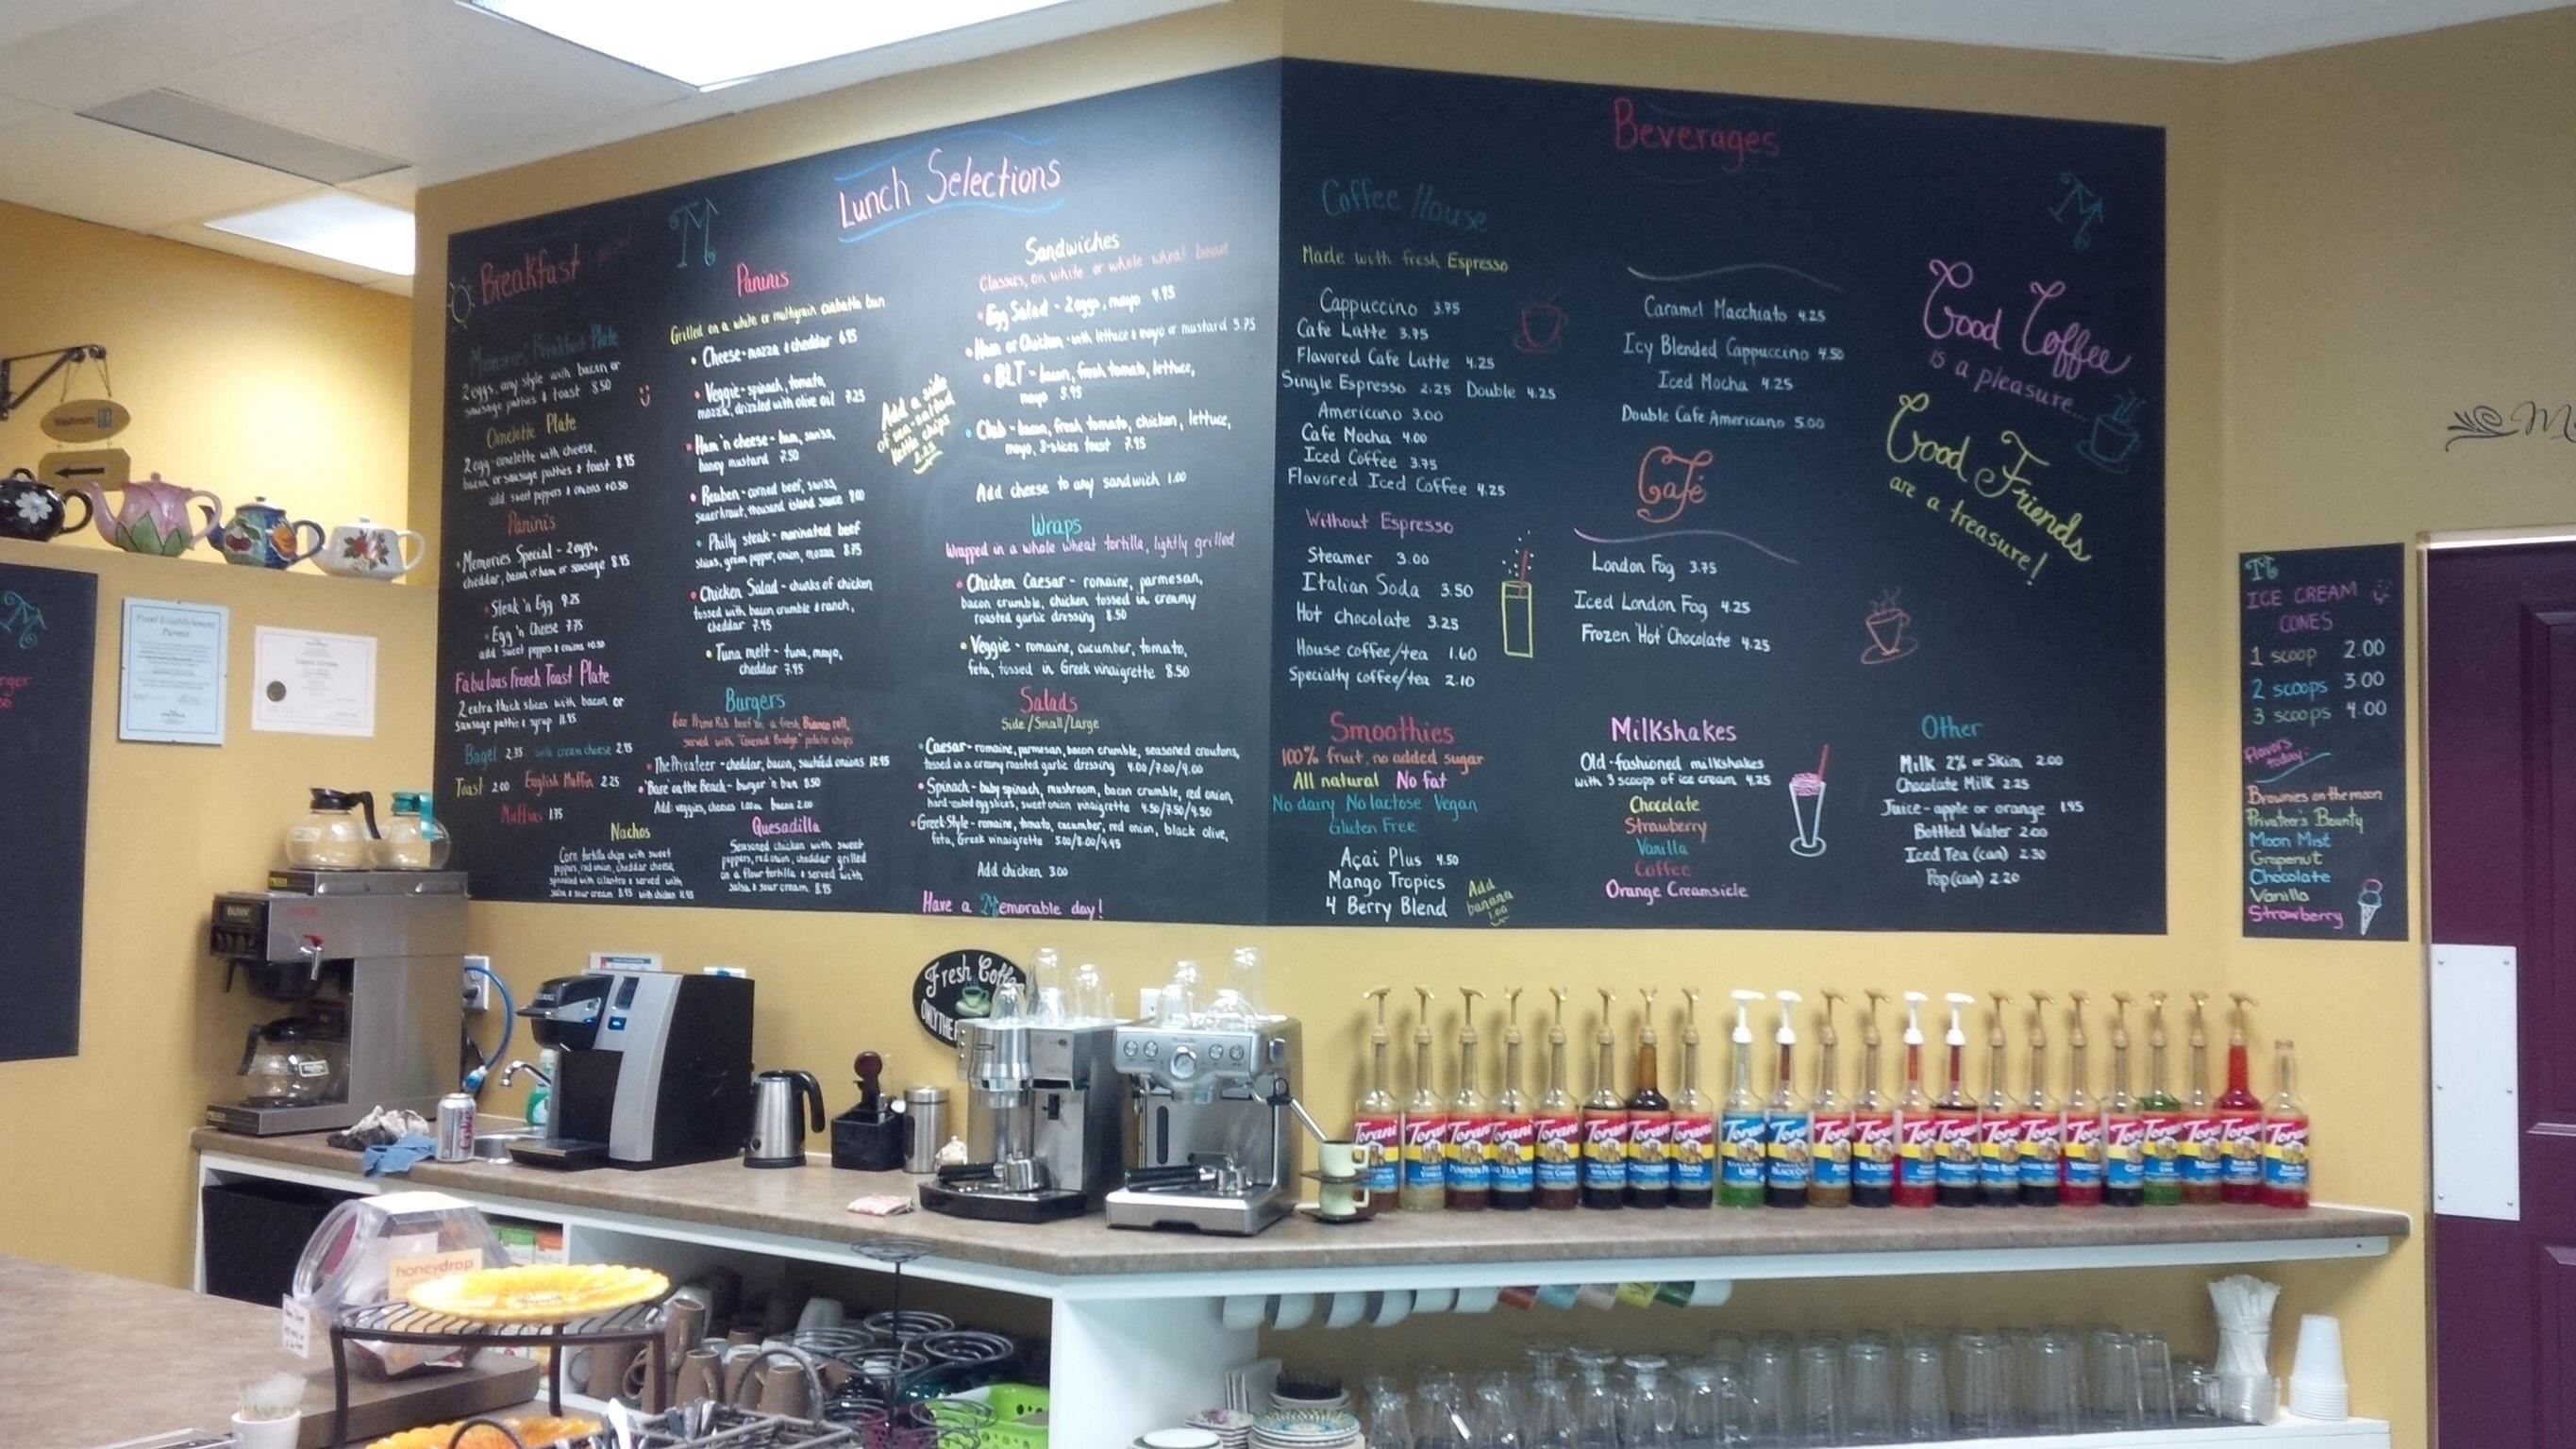 Washrooms
Food Establishment
Permit
Breakfast
Memories' Breakfast Plate
2 eggs, any style with bacon or
sausage patties & toast 8.50
Omelette Plate
2 egg omelette with cheese,
bacon or sausage patties & toast 8.95
add sweet peppers & onions +0.50
Paninis
Memories Special - 2 eggs,
cheddar, bacon or ham or sausage 8.95
Steak 'n Egg 9.25
Egg 'n Cheese 7.75
add sweet peppers & onions +0.50
Fabulous French Toast Plate
2 extra thick slices with bacon or
sausage pattie & syrup 11.95
Bagel 2.35 with cream cheese 2.95
Toast 2.00 English Muffin 2.25
Muffins 1.75
Nachos
Corn tortilla chips with sweet
peppers, red onion, cheddar cheese,
sprinkled with cilantro & served with
salsa & sour cream 8.95 with chicken 11.95
M
Lunch Selections
Paninis
Grilled on a white or multigrain ciabatta bun
Cheese - mozza & cheddar 6.95
Veggie - spinach, tomato,
mozza, drizzled with olive oil 7.25
Ham 'n cheese - ham, swiss,
honey mustard 7.50
Reuben - corned beef, swiss,
sauerkraut, thousand island sauce 8.00
Philly steak - marinated beef
skins, green pepper, onion, mozza 8.75
Chicken Salad - chunks of chicken
tossed with bacon crumble & ranch,
cheddar 7.95
Tuna melt - tuna, mayo,
cheddar 7.95
Burgers
6oz Prime Rib beef on a fresh Bianco roll,
served with "Covered Bridge" potato chips
The Privateer - cheddar, bacon, sautéed onions 12.95
'Bare on the Beach - burger 'n bun 8.50
Add: veggies, cheeses 1.00 ea bacon 2.00
Quesadilla
Seasoned chicken with sweet
peppers, red onion, cheddar grilled
on a flour tortilla & served with
salsa & sour cream 8.95
Add a side
of sea-salted
kettle chips
2.25
Sandwiches
Classics, on white or whole wheat bread
Egg Salad - 2 eggs, mayo 4.95
Ham or Chicken - with lettuce & mayo or mustard 5.75
BLT - bacon, fresh tomato, lettuce,
mayo 5.95
Club - bacon, fresh tomato, chicken, lettuce,
mayo, 3-slices toast 7.95
Add cheese to any sandwich 1.00
Wraps
Wrapped in a whole wheat tortilla, lightly grilled
Chicken Caesar - romaine, parmesan,
bacon crumble, chicken tossed in creamy
roasted garlic dressing 8.50
Veggie - romaine, cucumber, tomato,
feta, tossed in Greek vinaigrette 8.50
Salads
Side/Small/Large
Caesar - romaine, parmesan, bacon crumble, seasoned croutons,
tossed in a creamy roasted garlic dressing 4.00/7.00/9.00
Spinach - baby spinach, mushroom, bacon crumble, red onion,
hard-cooked egg slices, sweet onion vinaigrette 4.50/7.50/9.50
Greek Style - romaine, tomato, cucumber, red onion, black olive,
feta, Greek vinaigrette 5.00/8.00/9.95
Add chicken 3.00
Have a Memorable day!
Beverages
Coffee House
Made with fresh Espresso
Cappuccino 3.75
Cafe Latte 3.75
Flavored Cafe Latte 4.25
Single Espresso 2.25 Double 4.25
Americano 3.00
Cafe Mocha 4.00
Iced Coffee 3.75
Flavored Iced Coffee 4.25
Without Espresso
Steamer 3.00
Italian Soda 3.50
Hot chocolate 3.25
House coffee/tea 1.60
Specialty coffee/tea 2.10
Smoothies
100% fruit, no added sugar
All natural No fat
No dairy No lactose Vegan
Gluten Free
Açai Plus 4.50
Mango Tropics
4 Berry Blend
Add
banana
1.00
Caramel Macchiato 4.25
Icy Blended Cappuccino 4.50
Iced Mocha 4.25
Double Cafe Americano 5.00
Café
London Fog 3.75
Iced London Fog 4.25
Frozen 'Hot' Chocolate 4.25
Milkshakes
Old-fashioned milkshakes
with 3 scoops of ice cream 4.25
Chocolate
Strawberry
Vanilla
Coffee
Orange Creamsicle
M
Good Coffee
is a pleasure...
Good Friends
are a treasure!
Other
Milk 2% or Skim 2.00
Chocolate Milk 2.25
Juice - apple or orange 1.95
Bottled Water 2.00
Iced Tea (can) 2.30
Pop (can) 2.20
M
ICE CREAM
CONES
1 scoop 2.00
2 scoops 3.00
3 scoops 4.00
Flavors
today:
Brownies on the moon
Privateer's Bounty
Moon Mist
Grapenut
Chocolate
Vanilla
Strawberry
M
Fresh Coffee
ONLY THE
BUNN
Coke
honeydrop
Torani
PUMPKIN PIE
LIME